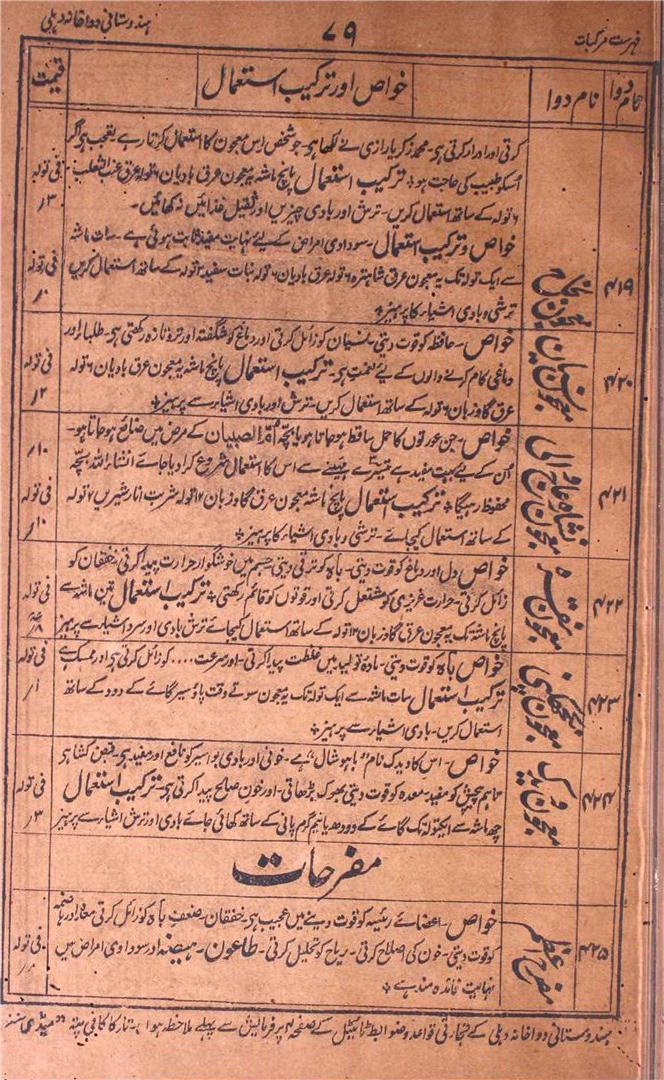 فہرست مرکبات ۷۹ ہندوستانی دواخانہ دہلی
نام دوا خواص اور ترکیب استعمال قیمت
کرتی اور ادرار کرتی ہو۔ محمد زکریا رازی نے لکھا ہو۔ جو شخص اس معجون کا استعمال کرتا رہے تعجب ہو اگر
اُسکو طبیب کی حاجت ہو ؞ ترکیب استعمال پانچ ماشہ یہ معجون عرق بادیان ۶ تولہ عرق عنب الثعلب فی تولہ
۶ تولہ کے ساتھ استعمال کریں۔ ترش اور بادی چیزیں اور ثقیل غذائیں نہ کھائیں۔ ۳ر
۴۱۹ معجون نجاح خواص و ترکیب استعمال۔ سوداوی امراض کے لیے نہایت مفید ثابت ہوئی ہے۔ سات ماشہ
سے ایک تولہ تک یہ معجون عرق شاہترہ ۶ تولہ عرق بادیان ۶ تولہ نبات سفید ۲ تولہ کے ساتھ استعمال کریں فی تولہ
ترشی و بادی اشیار کا پرہیز ؞
۴۲۰ معجون نسیان خواص۔ حافظہ کو قوت دیتی۔ نسیان کو زائل کرتی اور دماغ کو شگفتہ اور تروتازہ رکھتی ہی۔ طلبار اور
دماغی کام کرنے والوں کے لیے نعمت ہی۔ ترکیب استعمال پانچ ماشہ یہ معجون عرق بادیان ۶ تولہ فی تولہ
عرق گاوزبان ۶ تولہ کے ساتھ استعمال کریں۔ ترش اور بادی اشیار سے پرہیز ؞ ۲ر
۴۲۱ معجون خواص۔ جن عورتوں کا حمل ساقط ہو جاتا ہو یا بچہ اُم الصبیان کے مرض میں ضائع ہو جاتا ہو۔
اُن کے لیے بہت مفید ہے تیسرے مہینے سے اس کا استعمال شروع کرا دیا جائے انشاء اللہ بچہ
محفوظ رہیگا ؞ ترکیب استعمال پانچ ماشہ معجون عرق گاوزبان ۱۲ تولہ شربت انار شیریں ۲ تولہ فی تولہ
کے ساتھ استعمال کیجائے۔ ترشی و بادی اشیار کا پرہیز ؞
۴۲۲ معجون نقرہ خواص دل اور دماغ کو قوت دیتی۔ باہ کو ترقی دیتی جسم میں خوشگوار حرارت پیدا کرتی خفقان کو
زائل کرتی۔ حرارت غریزی کو مشتعل کرتی اور قوتوں کو قائم رکھتی ؞ ترکیب استعمال تین ماشہ سے فی تولہ
پانچ ماشہ تک یہ معجون عرق گاوزبان ۱۲ تولہ کے ساتھ استعمال کیجائے ترش بادی اور سرد اشیار سے پرہیز
۴۲۳ معجون خواص باہ کو قوت دیتی۔ مادہ تولید میں غلظت پیدا کرتی۔ اور سرعت .... کو زائل کرتی ہی اور ممسک ہے فی تولہ
ترکیب استعمال سات ماشہ سے ایک تولہ تک یہ معجون سوتے وقت پاؤ سیر گائے کے دودہ کے ساتھ
استعمال کریں۔ بادی اشیار سے پرہیز ؞
۴۲۴ معجون ویدک خواص۔ اس کا ویدک نام "باہو شال" ہے۔ خونی اور بادی بواسیر کو نافع اور مفید ہی۔ قبض کشا ہی
تاہم پیچش کو مفید۔ معدہ کو قوت دیتی بھوک بڑھاتی۔ اور خون صالح پیدا کرتی ہی۔ ترکیب استعمال فی تولہ
چھ ماشہ سے ایکتولہ تک گائے کے دودھ یا نیم گرم پانی کے ساتھ کھائی جائے بادی اور ترش اشیار سے پرہیز ۳ر
مفرحات
۴۲۵ مفرح اعظم خواص۔ اعضائے رئیسہ کو قوت دینے میں عجیب ہی۔ خفقان۔ ضعف باہ کو زائل کرتی معدہ اور ہاضمہ
کو قوت دیتی۔ خون کی اصلاح کرتی۔ ریاح کو تحلیل کرتی۔ طاعون۔ ہیضہ اور سوداوی امراض میں فی تولہ
نہایت فائدہ مند ہے ؞
ہندوستانی دواخانہ دہلی کے تجارتی قواعد و ضوابط ٹائیٹل کے صفحہ ۲ پر فرمائش سے پہلے ملاحظہ ہوا۔ تار کا کافی پتہ "میڈی سنز